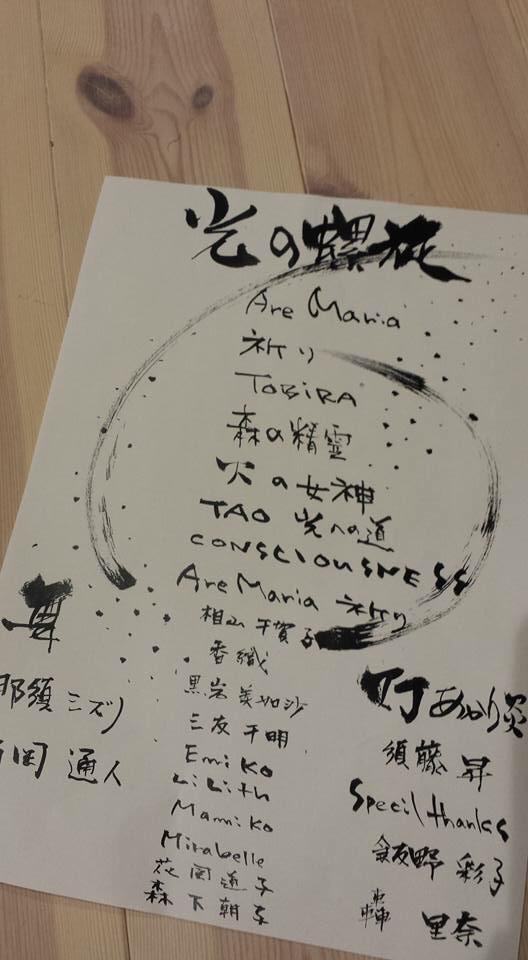 光の螺旋
Are Maria
祈り
TOBIRA
森の精霊
火の女神
TAO 光への道
CONSCIOUSNESS
Are Maria 祈り
相山 千賀子
香織
黒岩 美加沙
三友 千明
Emi Ko
LiLith
Mami Ko
Mirabelle
花岡 道子
森下 朝奈
舞
那須 ミズノ
岡 通人
灯 あかり炎
須藤 昇
Specil thanks
飯野 彩子
轟 里奈